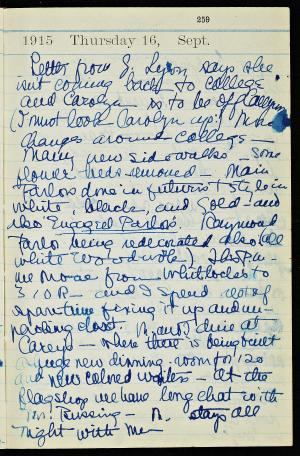 259
1915 Thursday 16, Sept.
Letter from J. Lyon says she
isnt coming back to College
and Carolyn is to be of
(I must look Carolyn up!) Much
changes around College –
Many new sidewalks – some
flower beds removed – Main
Parlors done in futurist style in
white, black, and gold – and
also Engaged Parlor. (Raymond
Parlor being redecorated also (all
white woodwork)
we move from Whitlocks to
310 R – and I spend rest of
spare time fixing it up and un-
packing closet. N. and I dine at
Careys – where there is being built
a huge new dinning-room for 120
and new colored waiters – At the
flagshop we have long chat with
Mr. – N. stays all
night with me